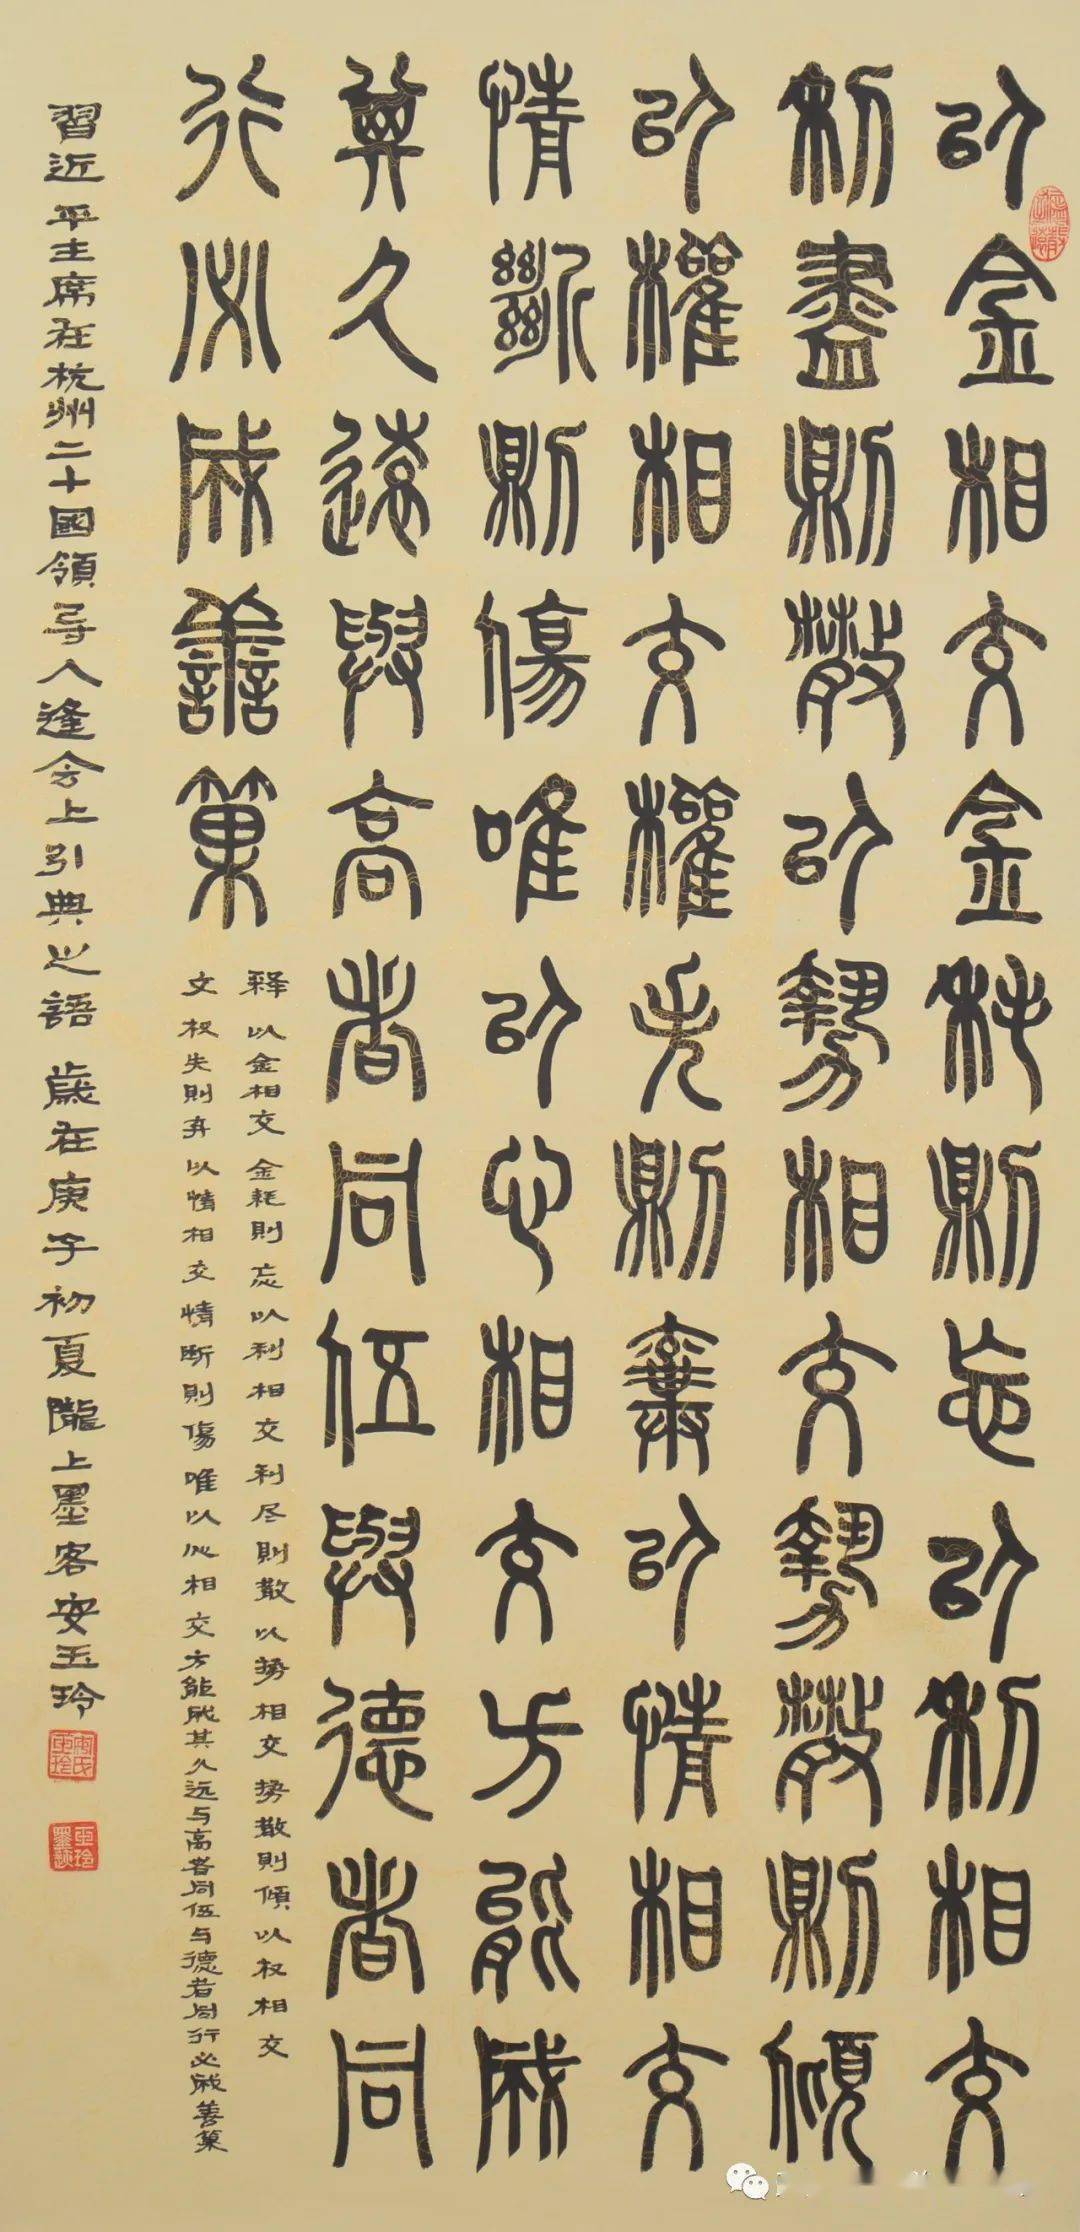 以金相交金耗則忘以利相交
利盡則散以勢相交勢散則傾
以權相交權失則棄以情相交
情斷則傷唯以心相交方能成
其久遠與高者同伍與德者同
行必成善菓
释 以金相交金耗則忘以利相交利尽則散以势相交势散則傾以权相交
文 权失則弃以情相交情断則傷唯以心相交方能成其久远与高者同伍与德者同行必成善菓
習近平主席在杭州二十國領导人逢会上引典之語 歲在庚子初夏隴上墨客安玉玲